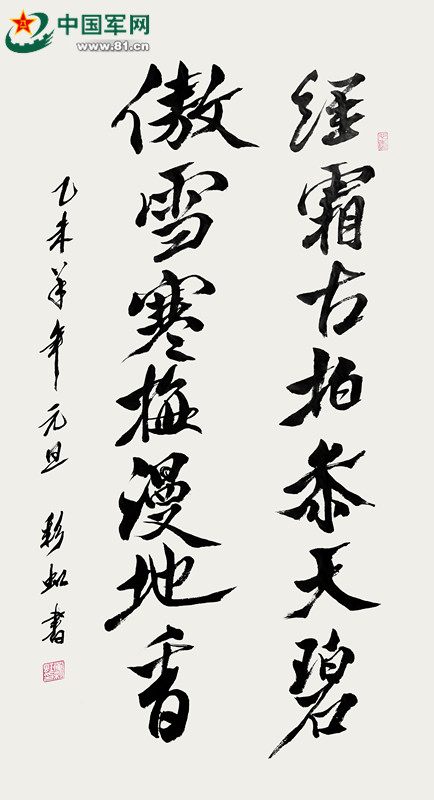 中国军网
www.81.cn
經霜古柏参天碧
傲雪寒梅漫地香
乙未羊年元旦 彩虹書